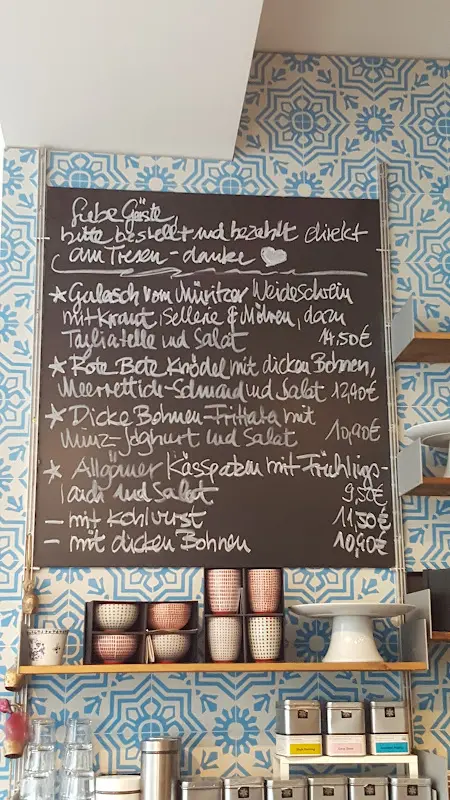 Liebe Gäste,
bitte bestellt und bezahlt direkt
am Tresen - danke
* Gulasch vom Müritzer Weideschwein
mit Kraut, Sellerie & Möhren, dazu
Tagliatelle und Salat 14,50€
* Rote Bete Knödel mit dicken Bohnen,
Meerrettich-Schmand und Salat 12,90€
* Dicke Bohnen-Frittata mit
Minz-Joghurt und Salat 10,90€
* Allgäuer Kässpatzen mit Frühlings-
lauch und Salat 9,50€
- mit Kohlwurst 11,50€
- mit dicken Bohnen 10,90€